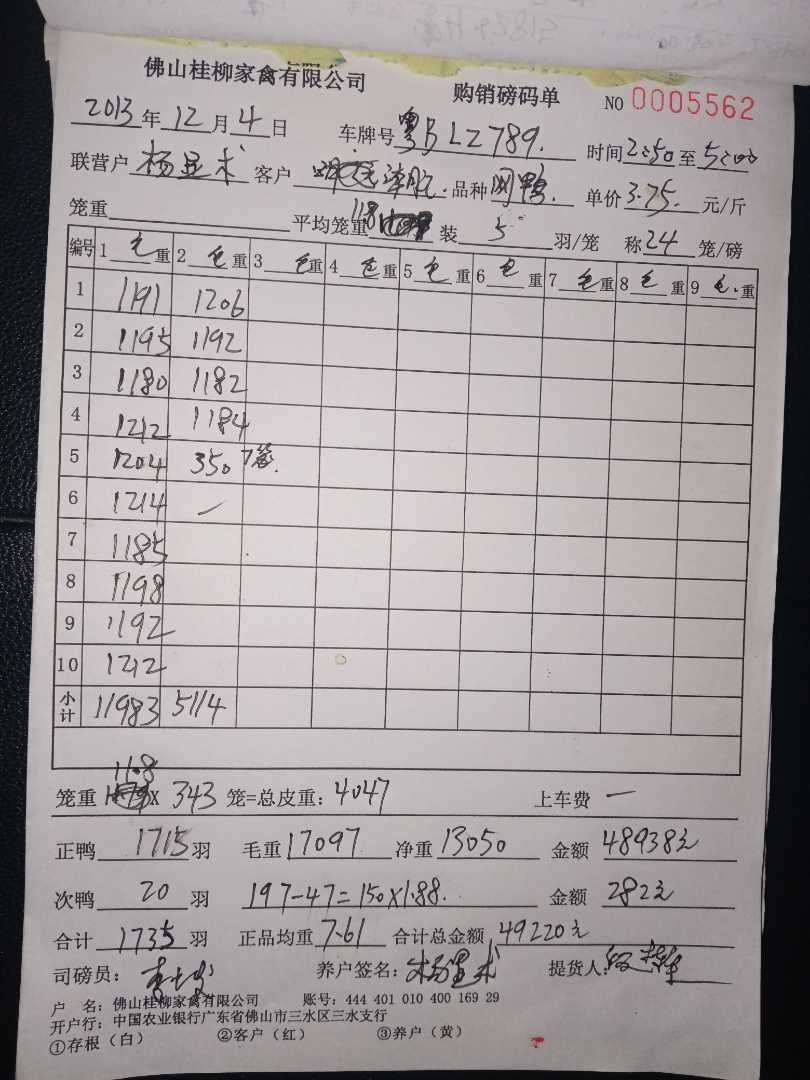 佛山桂柳家禽有限公司 购销磅码单 NO 0005562
2013年12月4日 车牌号 粤BLZ789. 时间2:50至5:00
联营户 杨显术 客户 品种 网鸭. 单价3.75.元/斤
笼重 平均笼重 118 装 5 羽/笼 称24笼/磅
编号 1毛重 2毛重 3毛重 4毛重 5毛重 6毛重 7毛重 8毛重 9毛重
1 1191 1206
2 1195 1192
3 1180 1182
4 1212 1184
5 1204 350 7笼.
6 1214 —
7 1185
8 1198
9 1192
10 1212
小计 11983 5114
笼重 11.8 X 343 笼=总皮重: 4047 上车费 —
正鸭 1715 羽 毛重 17097 净重 13050 金额 48938元
次鸭 20 羽 197-47=150X1.88. 金额 282元
合计 1735 羽 正品均重 7.61 合计总金额 49220元
司磅员: 养户签名: 杨显术 提货人:
户 名: 佛山桂柳家禽有限公司 账号: 444 401 010 400 169 29
开户行: 中国农业银行广东省佛山市三水区三水支行
①存根(白) ②客户(红) ③养户(黄)